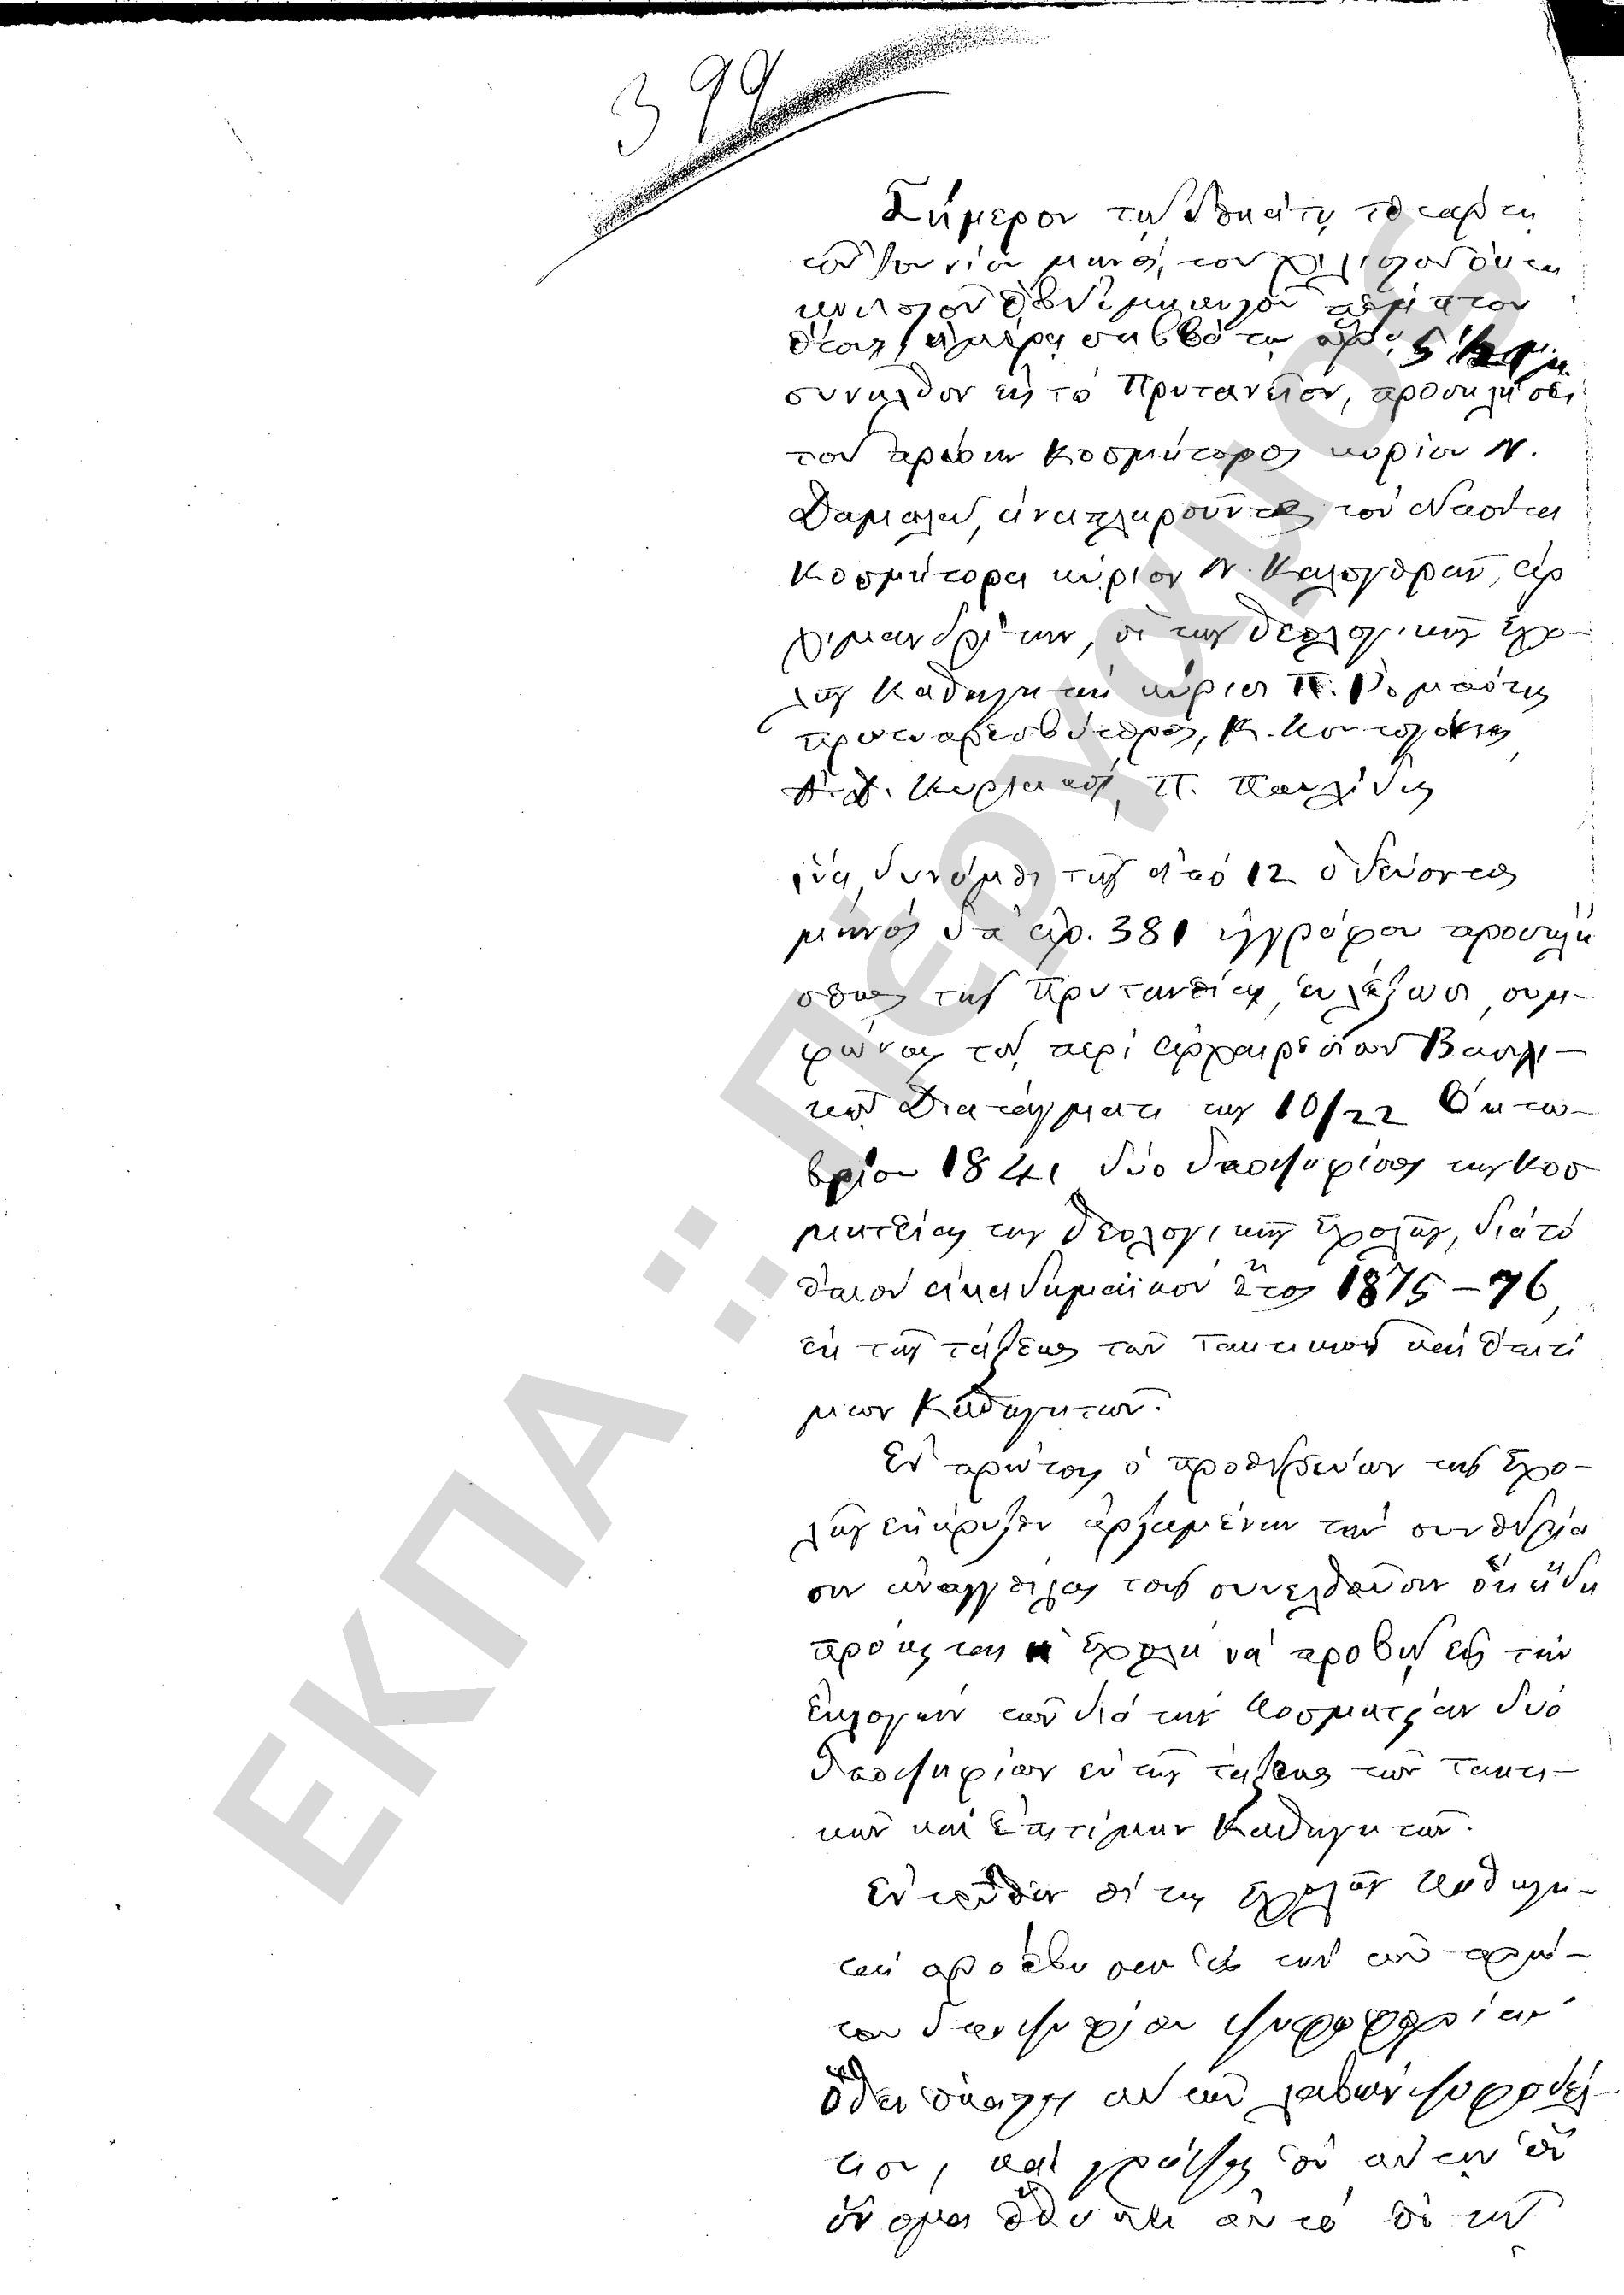 399
Σήμερον τῇ δεκάτῃ τετάρτῃ
τοῦ Ἰουνίου μηνός, τοῦ χιλιοστοῦ ὀκτα
κοσιοστοῦ ἑβδομηκοστοῦ πέμπτου
ἔτους, ἡμέρᾳ σαββάτῳ 5 1/2 μ.μ.
συνῆλθον εἰς τὸ Πρυτανεῖον, προσκλήσει
τοῦ πρώην Κοσμήτορος κυρίου Ν.
Δαμαλᾶ, ἀναπληροῦντος τὸν ἀπόντα
Κοσμήτορα κύριον Ν. Καλογερᾶν, ἀρ
χιμανδρίτην, οἱ τῆς θεολογικῆς Σχο-
λῆς Καθηγηταὶ κύριοι Π. Ρομπότης
πρωτοπρεσβύτερος, Κ. Κοντογόνης
Α. Δ. Κυριακός, Π. Παυλίδης
ἵνα, δυνάμει τῆς ἀπὸ 12 ὁδεύοντος
μηνός δι' ἀρ. 381 ἐγγράφου προσκλή
σεως τῆς Πρυτανείας, ἐκλέξωσι, συμ-
φώνως τῷ περὶ ἀρχαιρεσιῶν Βασιλι-
κῷ Διατάγματι τῆς 10/22 Ὀκτω-
βρίου 1841 δύο ὑποψηφίους τῆς Κοσ
μητείας τῆς θεολογικῆς Σχολῆς, διὰ τὸ
ἐπιὸν ἀκαδημαϊκὸν ἔτος 1875-76,
ἐκ τῆς τάξεως τῶν τακτικῶν καὶ ἐπιτί
μων Καθηγητῶν.
Ἐν πρώτοις ὁ προεδρεύων τῆς Σχο-
λῆς ἐκήρυξεν ἀρξαμένην τὴν συνεδρία
σιν ἀναγγείλας τοῖς συνελθοῦσιν ὅτι ἤδη
πρόκειται ἡ Σχολὴ νὰ προβῇ εἰς τὴν
ἐκλογὴν τῶν διὰ τὴν Κοσμητείαν δύο
ὑποψηφίων ἐκ τῆς τάξεως τῶν τακτι-
κῶν καὶ ἐπιτίμων Καθηγητῶν.
Ἐντεῦθεν οἱ τῆς Σχολῆς Καθηγη-
ταὶ προέβησαν εἰς τὴν τοῦ πρώ-
του ὑποψηφίου ψηφοφορίαν
ὅθεν ἕκαστος αὐτῶν λαβὼν ψηφοδέλ-
τιον, καὶ γράψας ἐν αὐτῷ ἓν
ὄνομα ἔθηκεν αὐτὸ ἐν τῇ